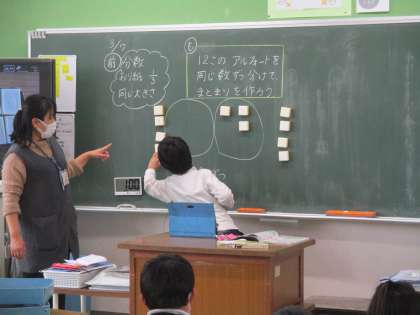 3/7
前 分数
おり紙 1/5
同じ大きさ
も
12この アルフォートを
同じ数ずつ分けて、
まとまりを作ろう
1:00